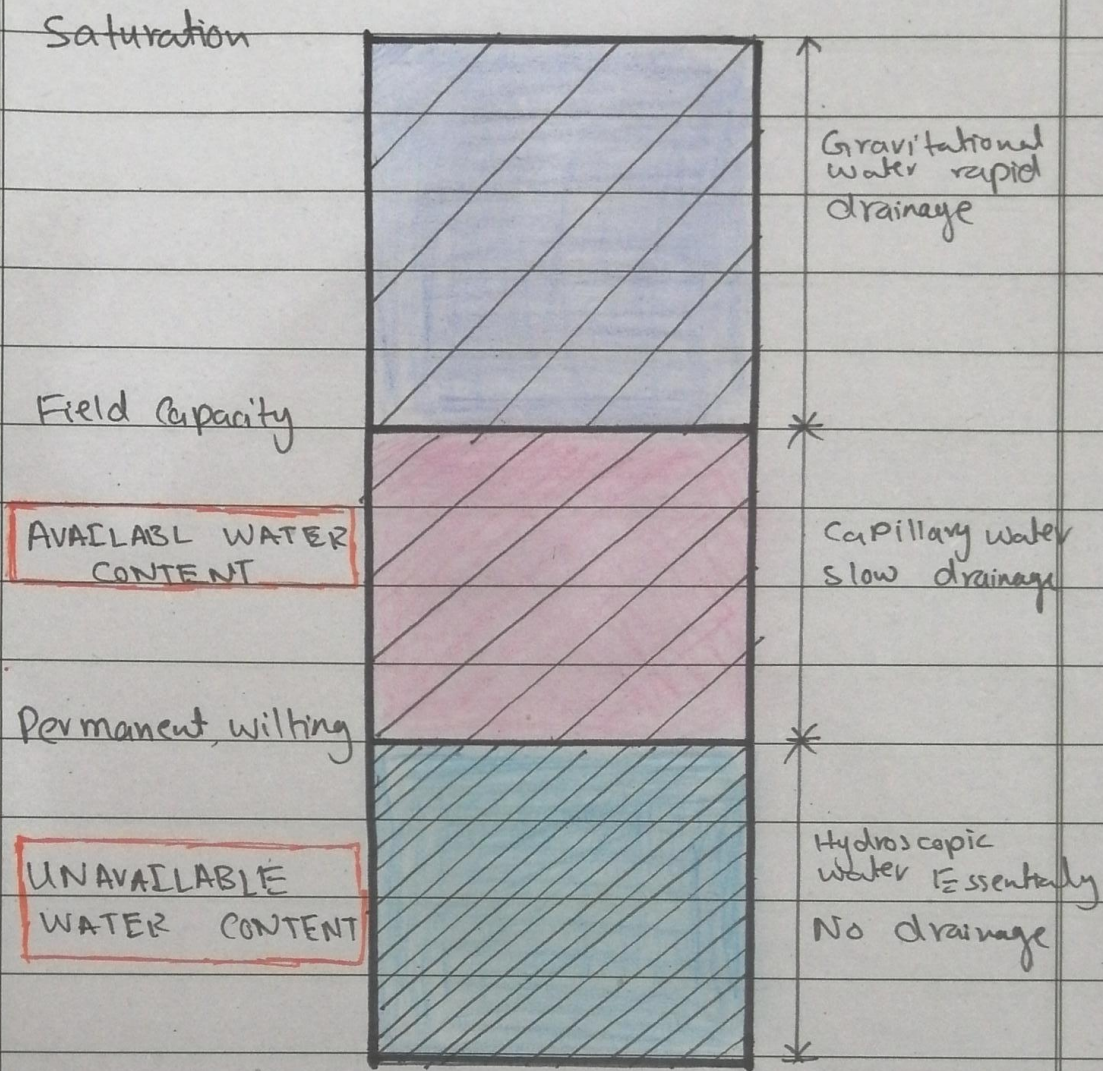 Saturation
Gravitational
water rapid
drainage
Field Capacity
AVAILABL WATER
CONTENT
Capillary water
slow drainage
Permanent wilting
UNAVAILABLE
WATER CONTENT
Hydroscopic
water Essentially
No drainage